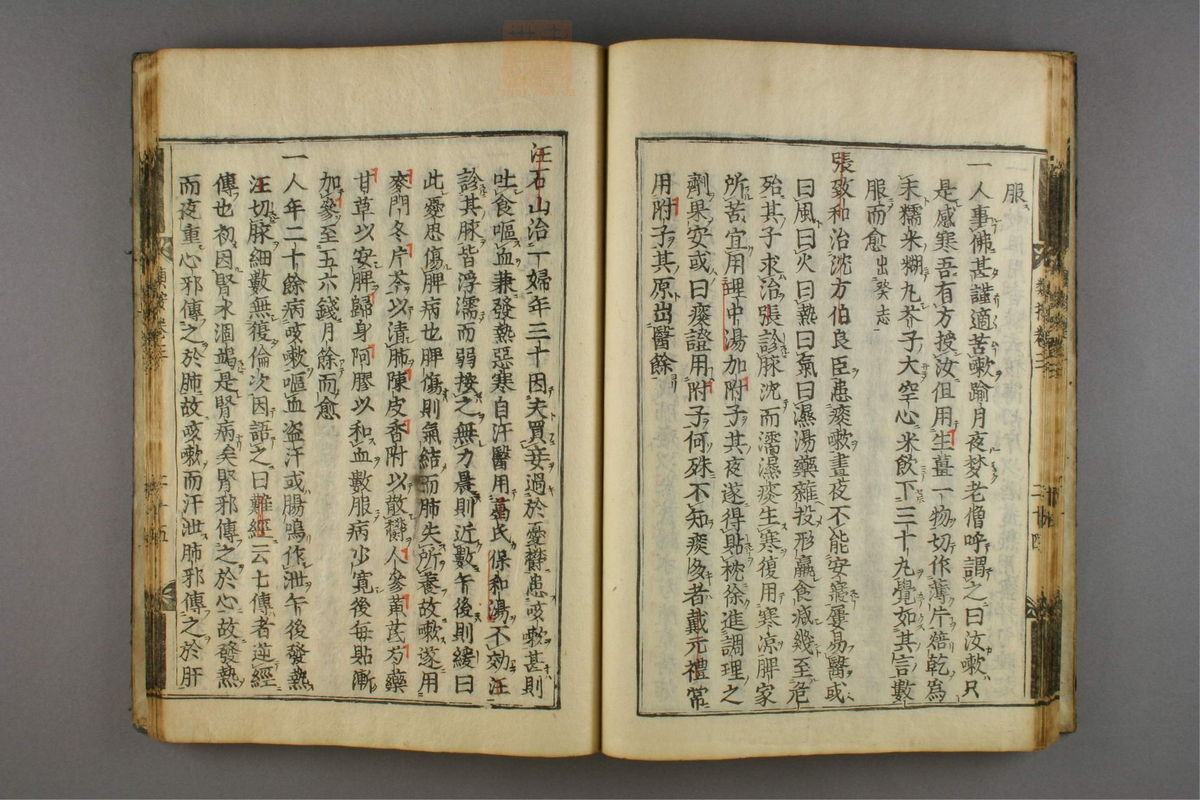 服
一人事佛甚謹適苦嗽踰月夜梦老僧呼謂之曰汝嗽只
是感寒吾有方授汝但用生薑一物切作薄片焙乾為
末糯米糊丸芥子大空心米飲下三十九覺如其言數
服而愈出癸志
張致和治沈方伯良臣患痰嗽晝夜不能安寢屢易醫或
曰風曰火曰熱曰氣曰濕湯藥雜投形羸食减幾至危
殆其子求治張診脉沈而濡濕痰生寒復用寒凉脾家
所苦宜用理中湯加附子其夜遂得貼枕徐進調理之
劑果安或曰痰證用附子何殊不知痰多者戴元禮常
用附子其原出醫餘
汪石山治一婦年三十因夫買妾過於憂鬱患咳嗽甚則
吐食嘔血兼發熱惡寒自汗醫用葛氏保和湯不効汪
診其脉皆浮濡而弱按之無力晨則近數午後則緩曰
此憂思傷脾病也脾傷則氣結而肺失所養故嗽遂用
麥門冬片芩以清肺陳皮香附以散鬱人參黄芪芍藥
甘草以安脾歸身阿膠以和血數服病少寛後每貼漸
加參至五六錢月餘而愈
一人年二十餘病咳嗽嘔血盗汗或腸鳴作泄午後發熱
汪切脉細數無復倫次因語之曰難經云七傳者逆經
傳也初因腎水涸竭是腎病矣腎邪傳之於心故發熱
而夜重心邪傳之於肺故咳嗽而汗泄肺邪傳之於肝